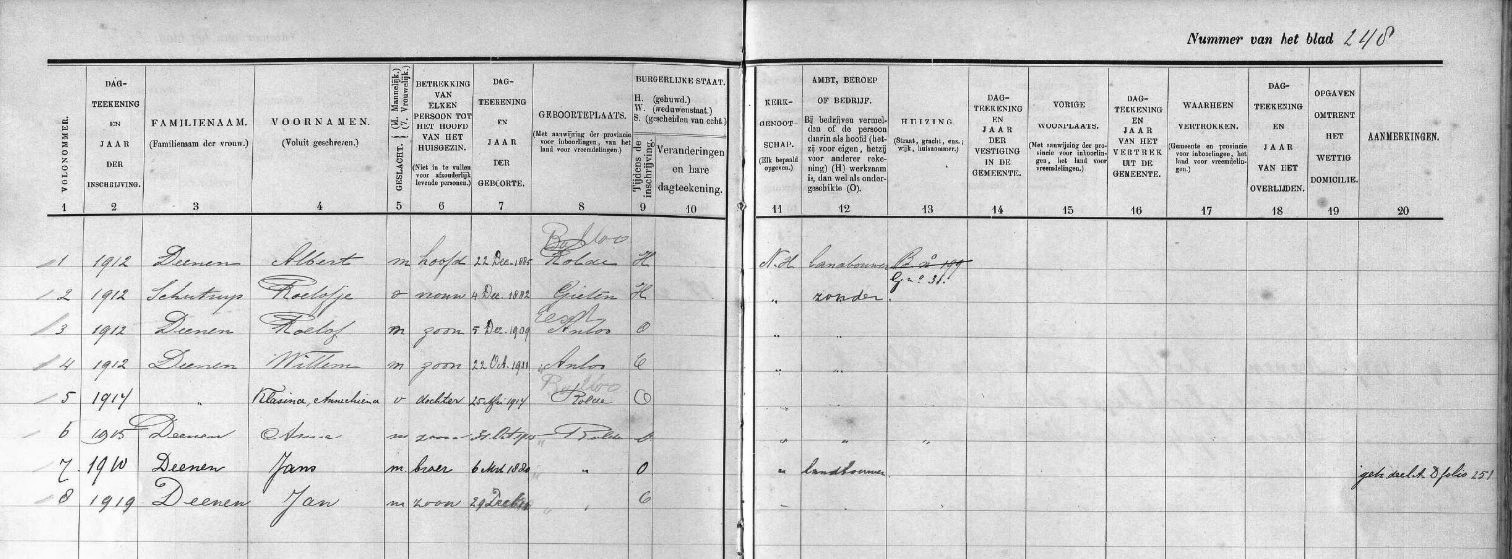 Nummer van het blad 248
VOLGNOMMER.
DAG-
TEEKENING
EN
JAAR
DER
INSCHRIJVING.
FAMILIENAAM.
(Familienaam der vrouw.)
VOORNAMEN.
(Voluit geschreven.)
GESLACHT. (M. Mannelijk.) (V. Vrouwelijk.)
BETREKKING
VAN
ELKEN
PERSOON TOT
HET HOOFD
VAN HET
HUISGEZIN.
(Niet in te vullen
voor afzonderlijk
levende personen.)
DAG-
TEEKENING
EN
JAAR
DER
GEBOORTE.
GEBOORTEPLAATS.
(Met aanwijzing der provincie
voor inboorlingen, van het
land voor vreemdelingen.)
BURGERLIJKE STAAT.
H. (gehuwd.)
W. (weduwenstaat.)
S. (gescheiden van echt.)
Tijdens de
inschrijving.
Veranderingen
en hare
dagteekening.
KERK-
GENOOT-
SCHAP.
(Elk bepaald
opgeven.)
AMBT, BEROEP
OF BEDRIJF.
Bij bedrijven vermel-
den of de persoon
daarin als hoofd (het-
zij voor eigen, hetzij
voor andere reke-
ning) (H) werkzaam
is, dan wel als onder-
geschikte (O).
HUIZING.
(Straat, gracht, enz.;
wijk, huisnommer.)
DAG-
TEEKENING
EN
JAAR
DER
VESTIGING
IN DE
GEMEENTE.
VORIGE
WOONPLAATS.
(Met aanwijzing der pro-
vincie voor inboorlin-
gen, het land voor
vreemdelingen.)
DAG-
TEEKENING
EN
JAAR
VAN HET
VERTREK
UIT DE
GEMEENTE.
WAARHEEN
VERTROKKEN.
(Gemeente en provincie
voor inboorlingen, het
land voor vreemdelin-
gen.)
DAG-
TEEKENING
EN
JAAR
VAN HET
OVERLIJDEN.
OPGAVEN
OMTRENT
HET
WETTIG
DOMICILIE.
AANMERKINGEN.
1 2 3 4 5 6 7 8 9 10 11 12 13 14 15 16 17 18 19 20
Balloo
1 1912 Deenen Albert m hoofd 22 Dec. 1885 Rolde H N.H landbouwer B no 199
G no 31.
2 1912 Schutrup Roelofje v vrouw 4 Dec. 1882 Gieten H " zonder
Eext
3 1912 Deenen Roelof m zoon 5 Dec. 1909 Anloo O "
4 1912 Deenen Willem m zoon 22 Oct. 1911 Anloo O "
Balloo
5 1914 " Klasina, Annechiena v dochter 1914 Rolde O "
6 1915 Deenen m zoon Rolde " " "
7 1910 Deenen Jans m broer 6 1880 " O " landbouwer D folio 251
8 1919 Deenen Jan m zoon 29 Dec " "